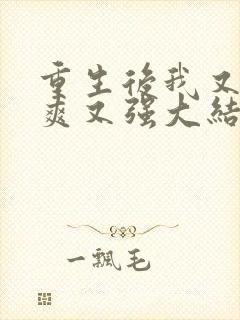 重生後我又
爽又强大結
一飄毛